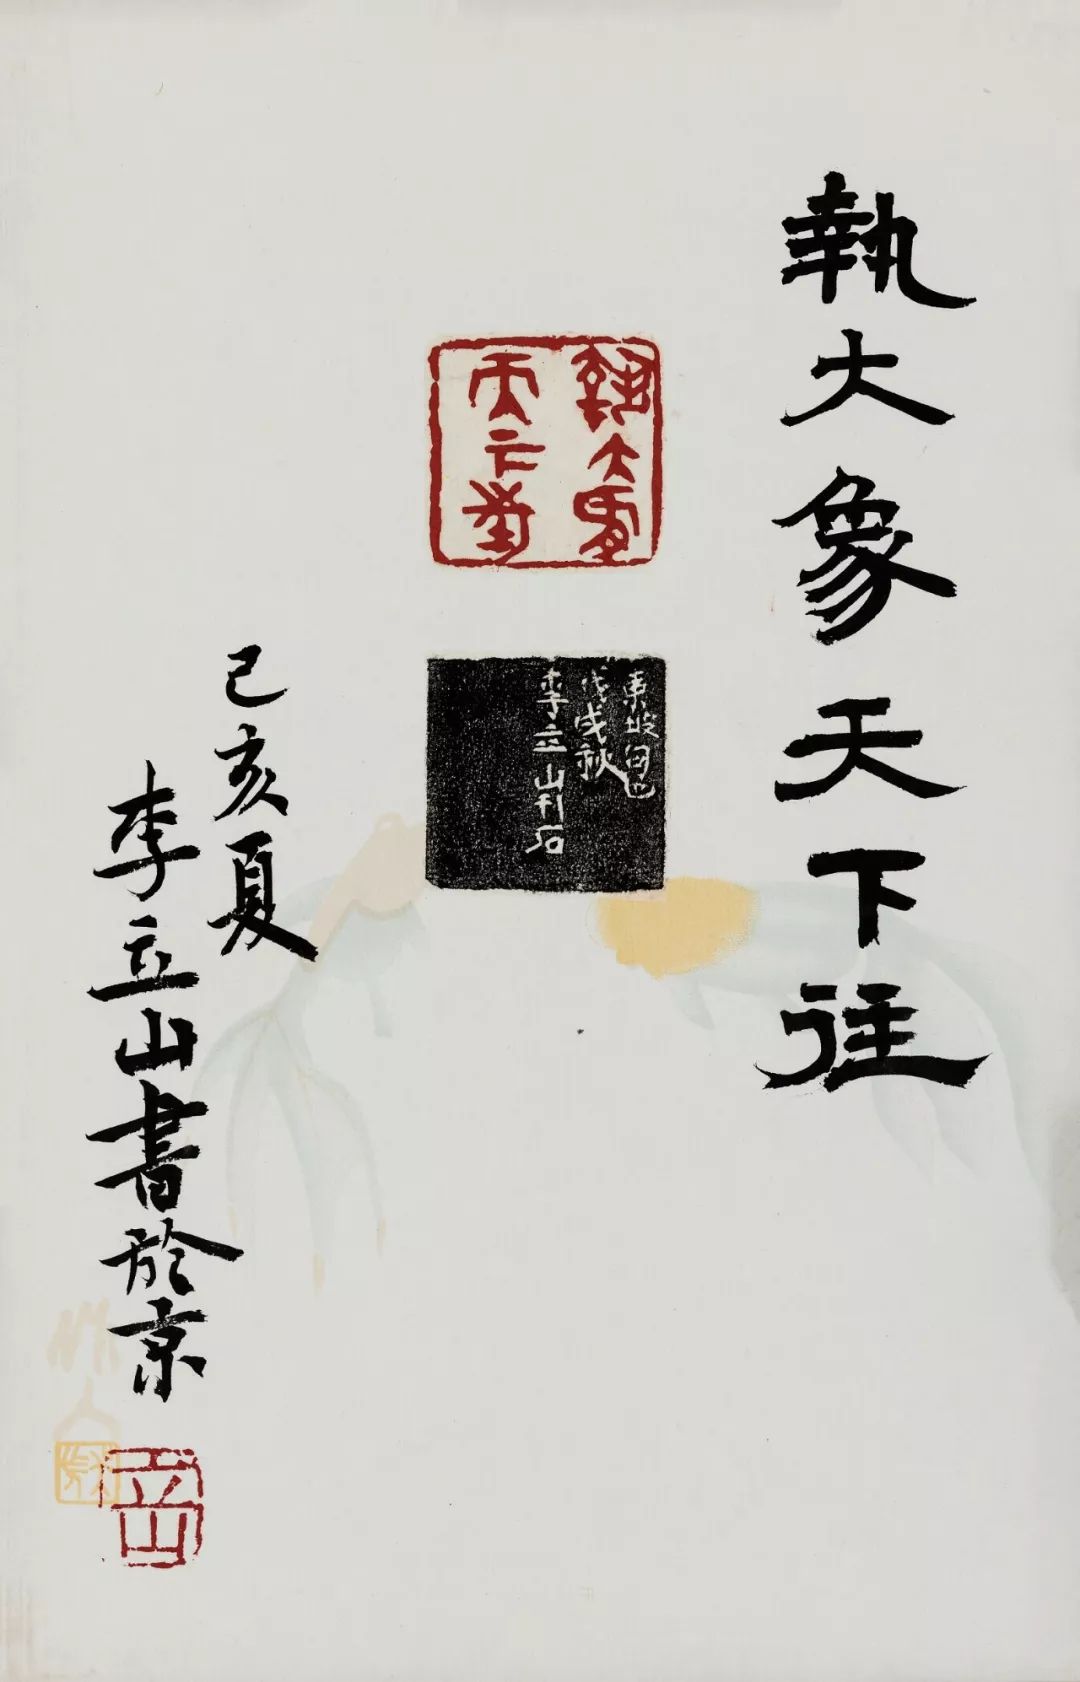 執大象天下往
執大象
天下往
東坡句也
戊戌秋
李立山刊石
己亥夏
李立山書於京
立山